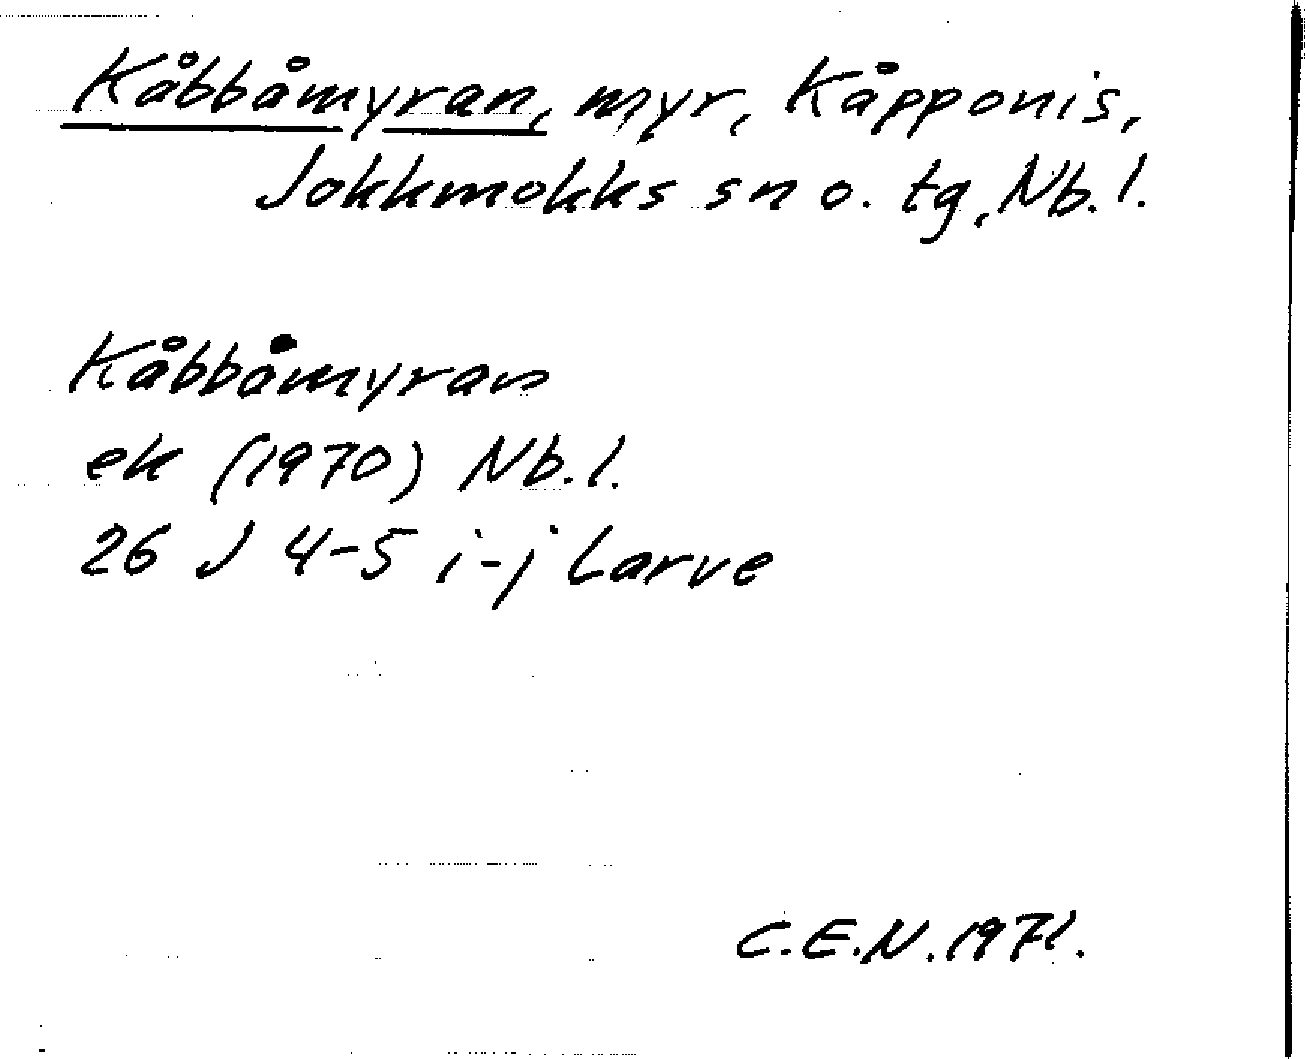 Kåbbåmyran, myr, Kåpponis,
Jokkmokks sn o. tg, Nb. l.
Kåbbåmyran
ek (1970) Nb. l.
26 J 4-5 i-j Larve
C.E.N. 1971.